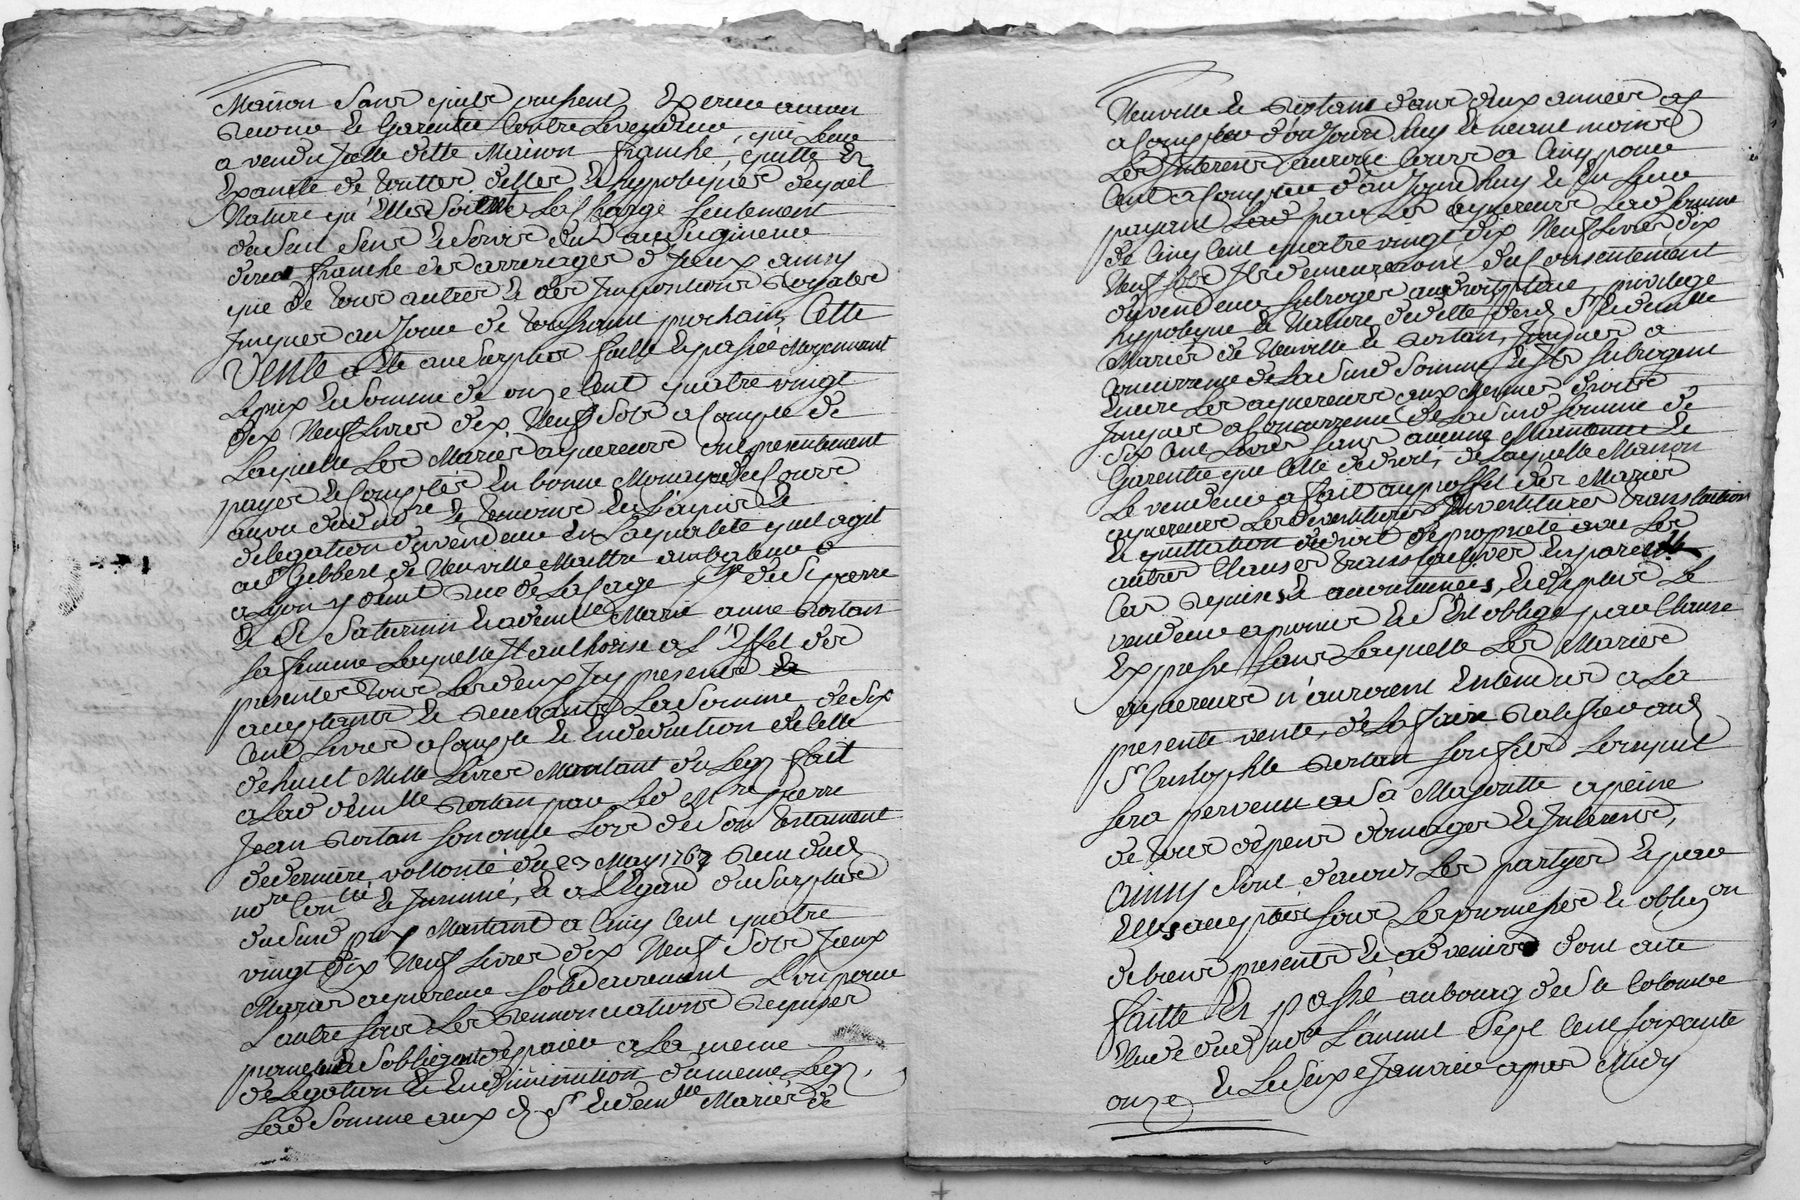 Maison sans qu'ils puissent exercer aucun
recours et garentie contre le vendeur, qui leur
a vendu Jcelle ditte Maison franche, quitte et
Exante de toutes dettes et hypoteques de quel
Nature qu'Elles soient a la charge seulement
du Sen Sens et Servis dud au Seigneur
direct franche des arrerages d'Jceux ainsy
que de tous autres et des Jmpositions Royales
Jusques au Jour de toussaint prochain, Cette
Vente a été au Surplus faitte et passée Moyennant
le prix et Somme de onze Cent quatre vingt
dix Neuf Livres dix Neuf Sols a Compte de
laquelle les Mariés aquereurs ont presentement
payés et Comptés En bonne Monaye de Cours
au vu dud no.re et temoins et de l'avis et
delegation du vendeur En la qualité qu'il agit
a Sr Gilbert de Neuville Maittre
a Lyon y demt rue de La Cage psse de St pierre
et St Saturnin et a demlle Marie anne Rortan
sa femme laquelle Jl authorise a l'Effet des
presentes tous les deux Jcy presents
acceptants et recevants la Somme de Six
Cent Livres a Compte et En deduction de Celle
de huit Mille Livres Montant du Leg fait
a lad demlle Rortan par led Mre pierre
Jean Rortan son oncle Lors de son testament
de derniere vollonté du 23 May 1767 Recu dud
nore Conlté et Jnsinué, et a l'Egard du Surplus
du Susd prix Montant a Cinq Cent quatre
vingt dix Neuf Livres dix Neuf Sols Jceux
Mariés aquereurs solidairement L'un pour
L'autre sous les Renonciations Requises
promettent et S'obligent de payer a la meme
delegation et En diminution du meme Leg,
Lad Somme aux d Sr et demlle Mariés de
Neuville et Rortan dans deux années a
a Compter d'aujourd'huy et neantmoins
Les Jnterets auront Cours a Cinq pour
Cent a Compter d'aujourd'huy et En leur
payant Lad par les aquereurs Lad somme
de Cinq Cent quatre vingt dix Neuf Livres dix
Neuf Sols Jls demeureront du Consentement
du vendeur subrogés aux droits place, privilege
hypoteque et Nature de dette desd Sr et demlle
Mariés de Neuville et Rortan, Jusques a
Concurrence de la Susd Somme et Jls subrogent
Encore les aquereurs aux Memes droits
Jusques a Concurrence de la Susd somme de
Six Cent Livres sans aucune Maintenue et
Garentie que Celle de droit, de laquelle Maison
Le vendeur a fait au proffit des Mariés
aquereurs les devestitures Jnvestitures translation
et quittation de droit de proprieté avec les
autres Clauses translatives En pareil
Cas requises et accoutumées, et de plus le
vendeur a promis et s'Est obligé par Clause
Expresse sans laquelle les Mariés
aquereurs n'auroient Entendus a la
presente vente, de la faire Ratifier aud
Sr Cristophle Rortan son fils Lorsqu'il
sera pervenu a sa Majoritté a peine
de tous depens domages et Jnterets,
ainsy Sont d'acord les partyes et par
Elles accepté sous Les promesses et obligon
de biens presents et advenirs dont acte
faitte et passé au bourg de Ste Colombe
Etude dud nore L'an mil Sept Cent soixante
onze et le Seize Janvier apres Midy